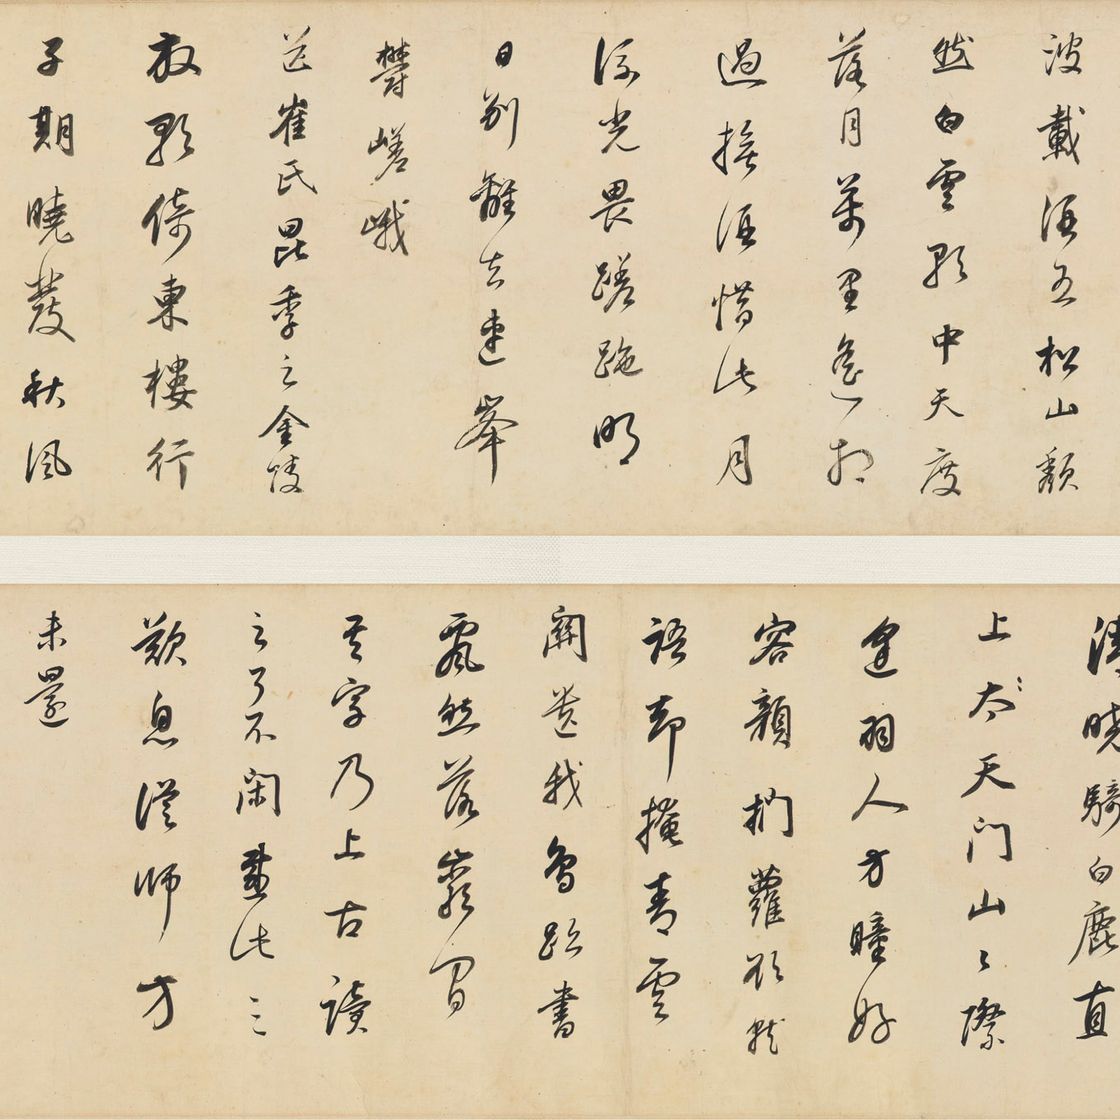 波載酒五松山頹
然白雲歌中天度
落月萬里遙相
過撫酒惜此月
流光畏蹉跎明
日別離去連峯
鬱嵯峨
送崔氏昆季之金陵
放歌倚東樓行
子期曉發秋風
清曉騎白鹿直
上太天門山〻際
逢羽人方瞳好
容顏捫蘿欲就
語却掩青雲
關遺我鳥跡書
飄然落巖間
其字乃上古讀
之了不閑感此三
歎息從師方
未還